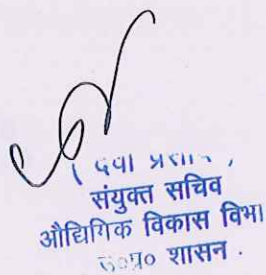 संयुक्त सचिव
औद्यिगिक विकास विभा
उ०प्र० शासन .